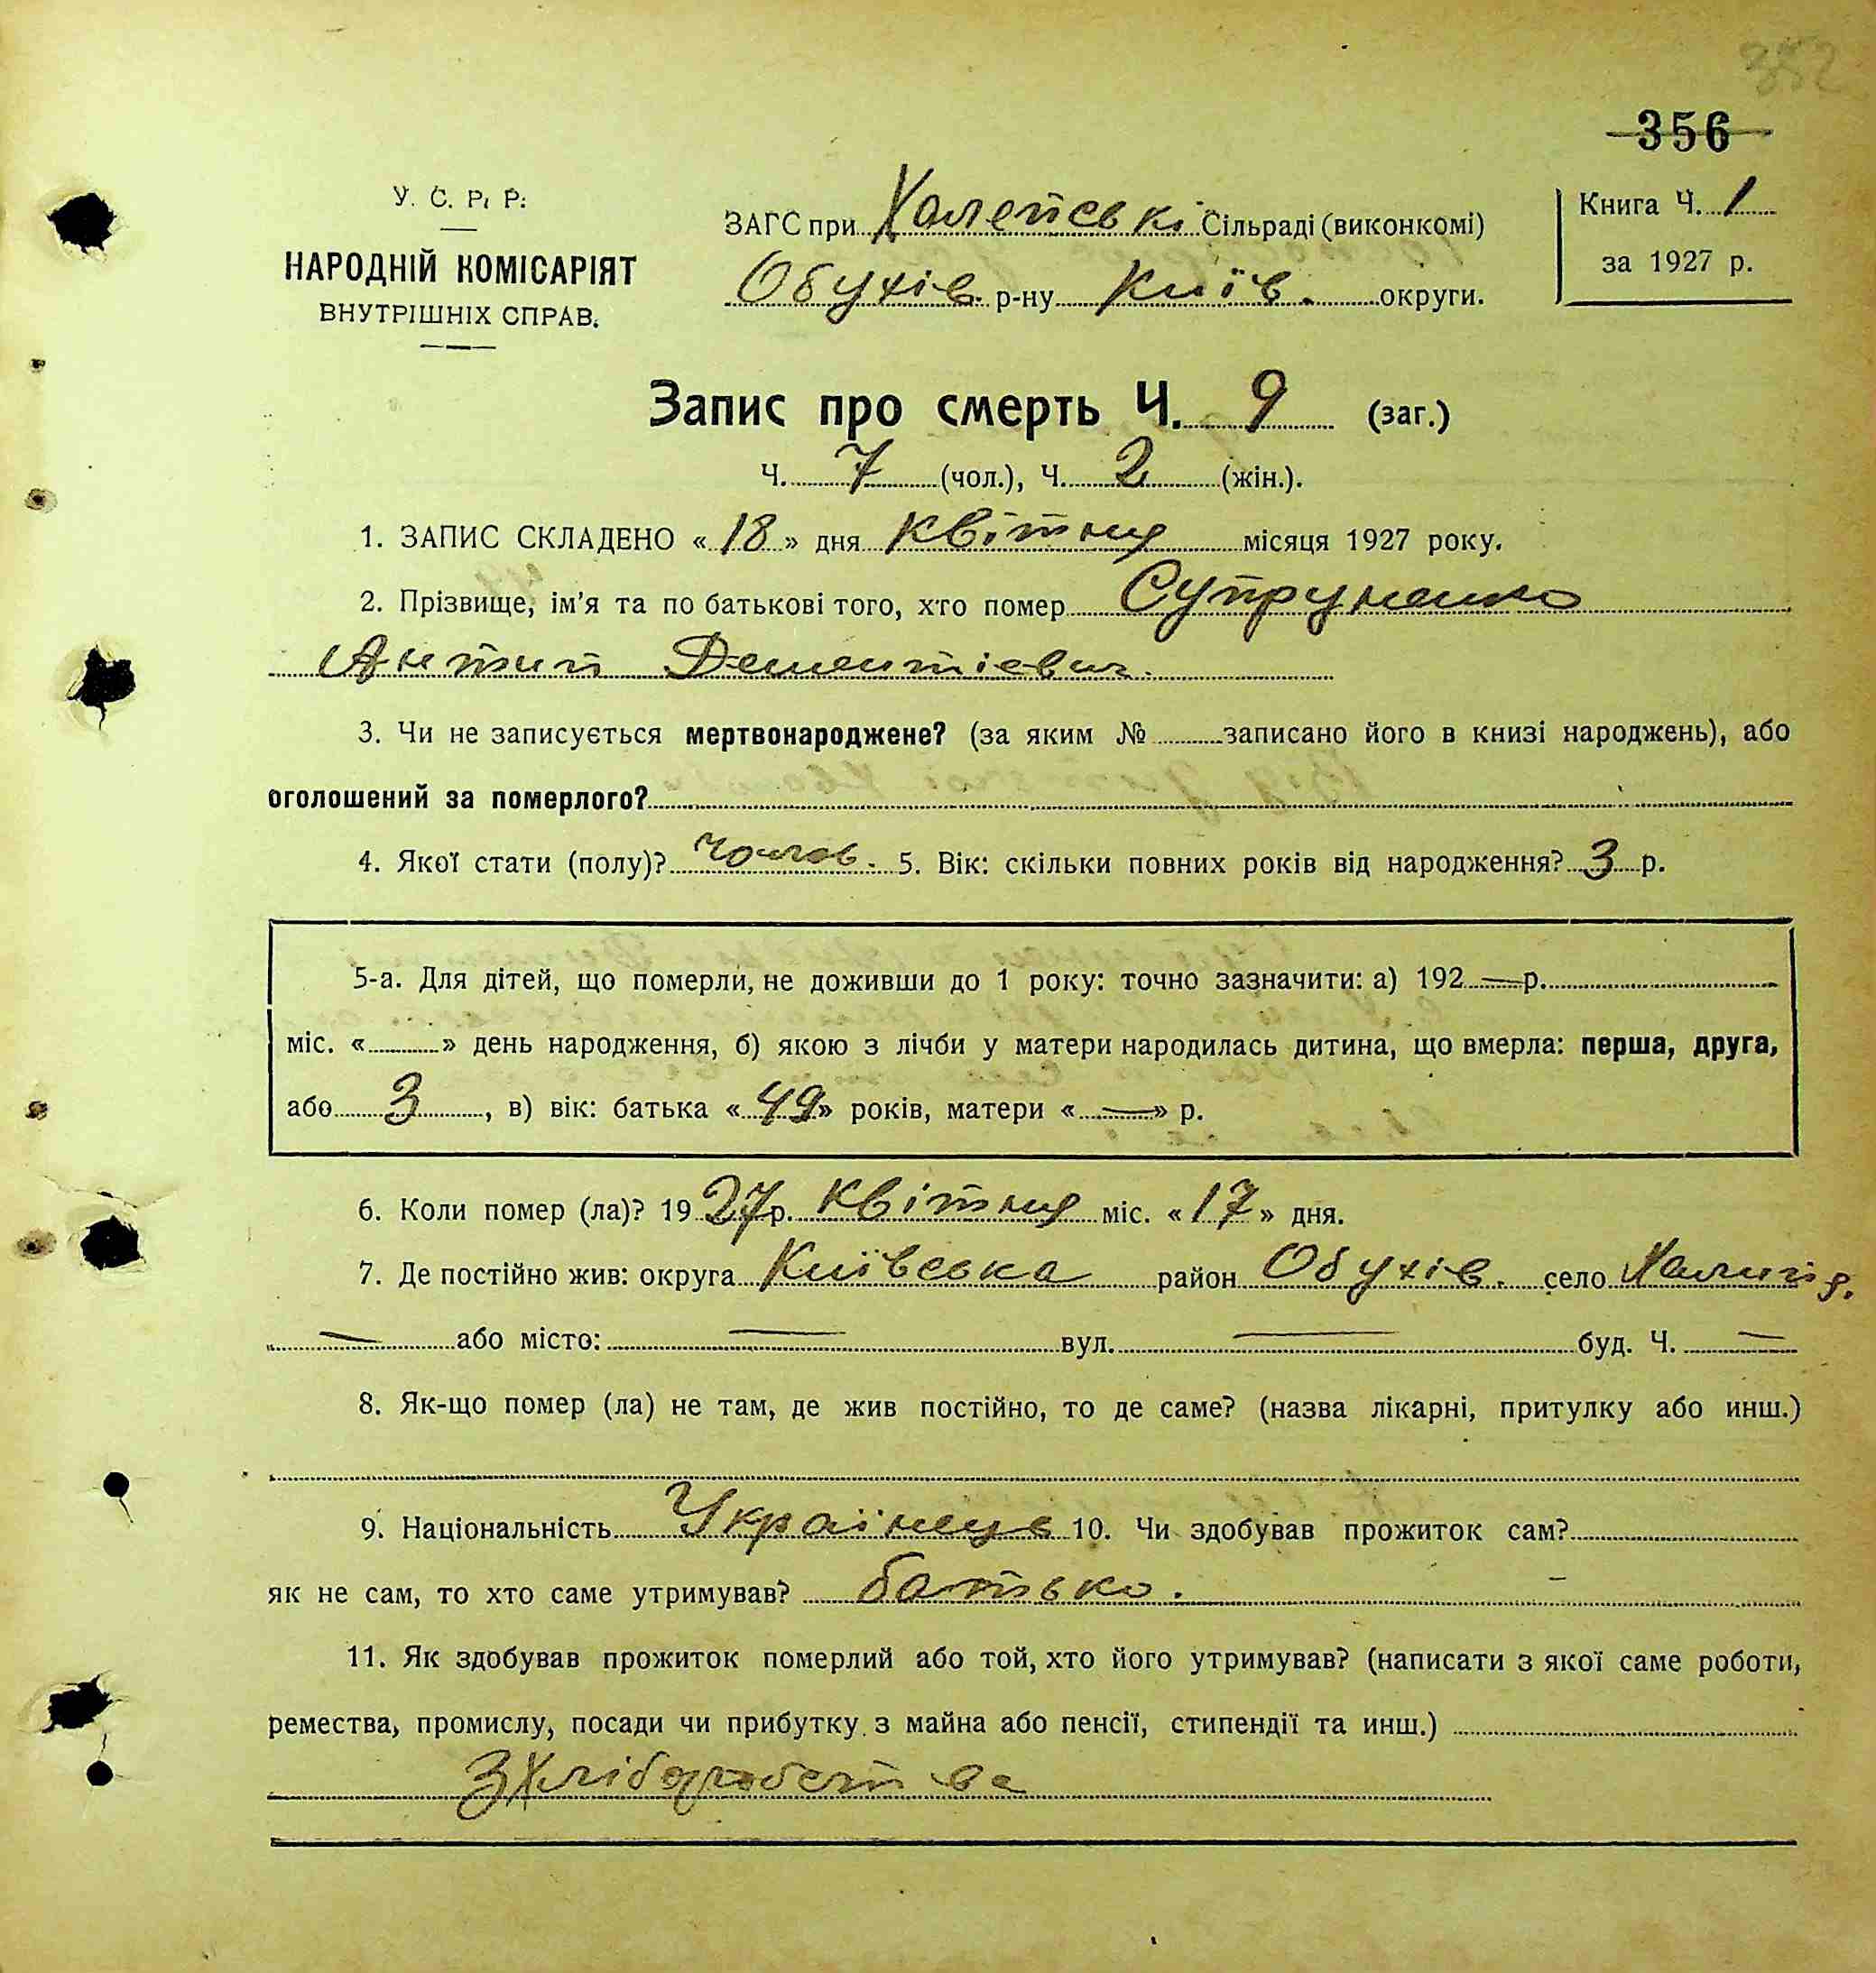 352
356
У. С. Р. Р.
НАРОДНІЙ КОМІСАРІЯТ
ВНУТРІШНІХ СПРАВ.
ЗАГС при Халепські Сільраді (виконкомі)
Обухів. р-ну Київ. округи.
Книга Ч. 1
за 1927 р.
Запис про смерть Ч. 9 (заг.)
Ч. 7 (чол.), Ч. 2 (жін.).
1. ЗАПИС СКЛАДЕНО « 18 » дня Квітня місяця 1927 року.
2. Прізвище, ім’я та по батькові того, хто помер Супруненко
Антип Дементіевич.
3. Чи не записується мертвонароджене? (за яким № записано його в книзі народжень), або
оголошений за померлого?
4. Якої стати (полу)? чолов. 5. Вік: скільки повних років від народження? 3 р.
5-а. Для дітей, що померли, не доживши до 1 року: точно зазначити: а) 192 — р.
міс. « » день народження, б) якою з лічби у матери народилась дитина, що вмерла: перша, друга,
або 3, в) вік: батька « 49 » років, матери « — » р.
6. Коли помер (ла)? 1927 р. Квітня міс. « 17 » дня.
7. Де постійно жив: округа Київська район Обухів. село
— або місто: — вул. — буд. Ч. —
8. Як-що помер (ла) не там, де жив постійно, то де саме? (назва лікарні, притулку або инш.)
9. Національність Українець 10. Чи здобував прожиток сам?
як не сам, то хто саме утримував? батько.
11. Як здобував прожиток померлий або той, хто його утримував? (написати з якої саме роботи,
ремества, промислу, посади чи прибутку з майна або пенсії, стипендії та инш.)
З Хліборобства